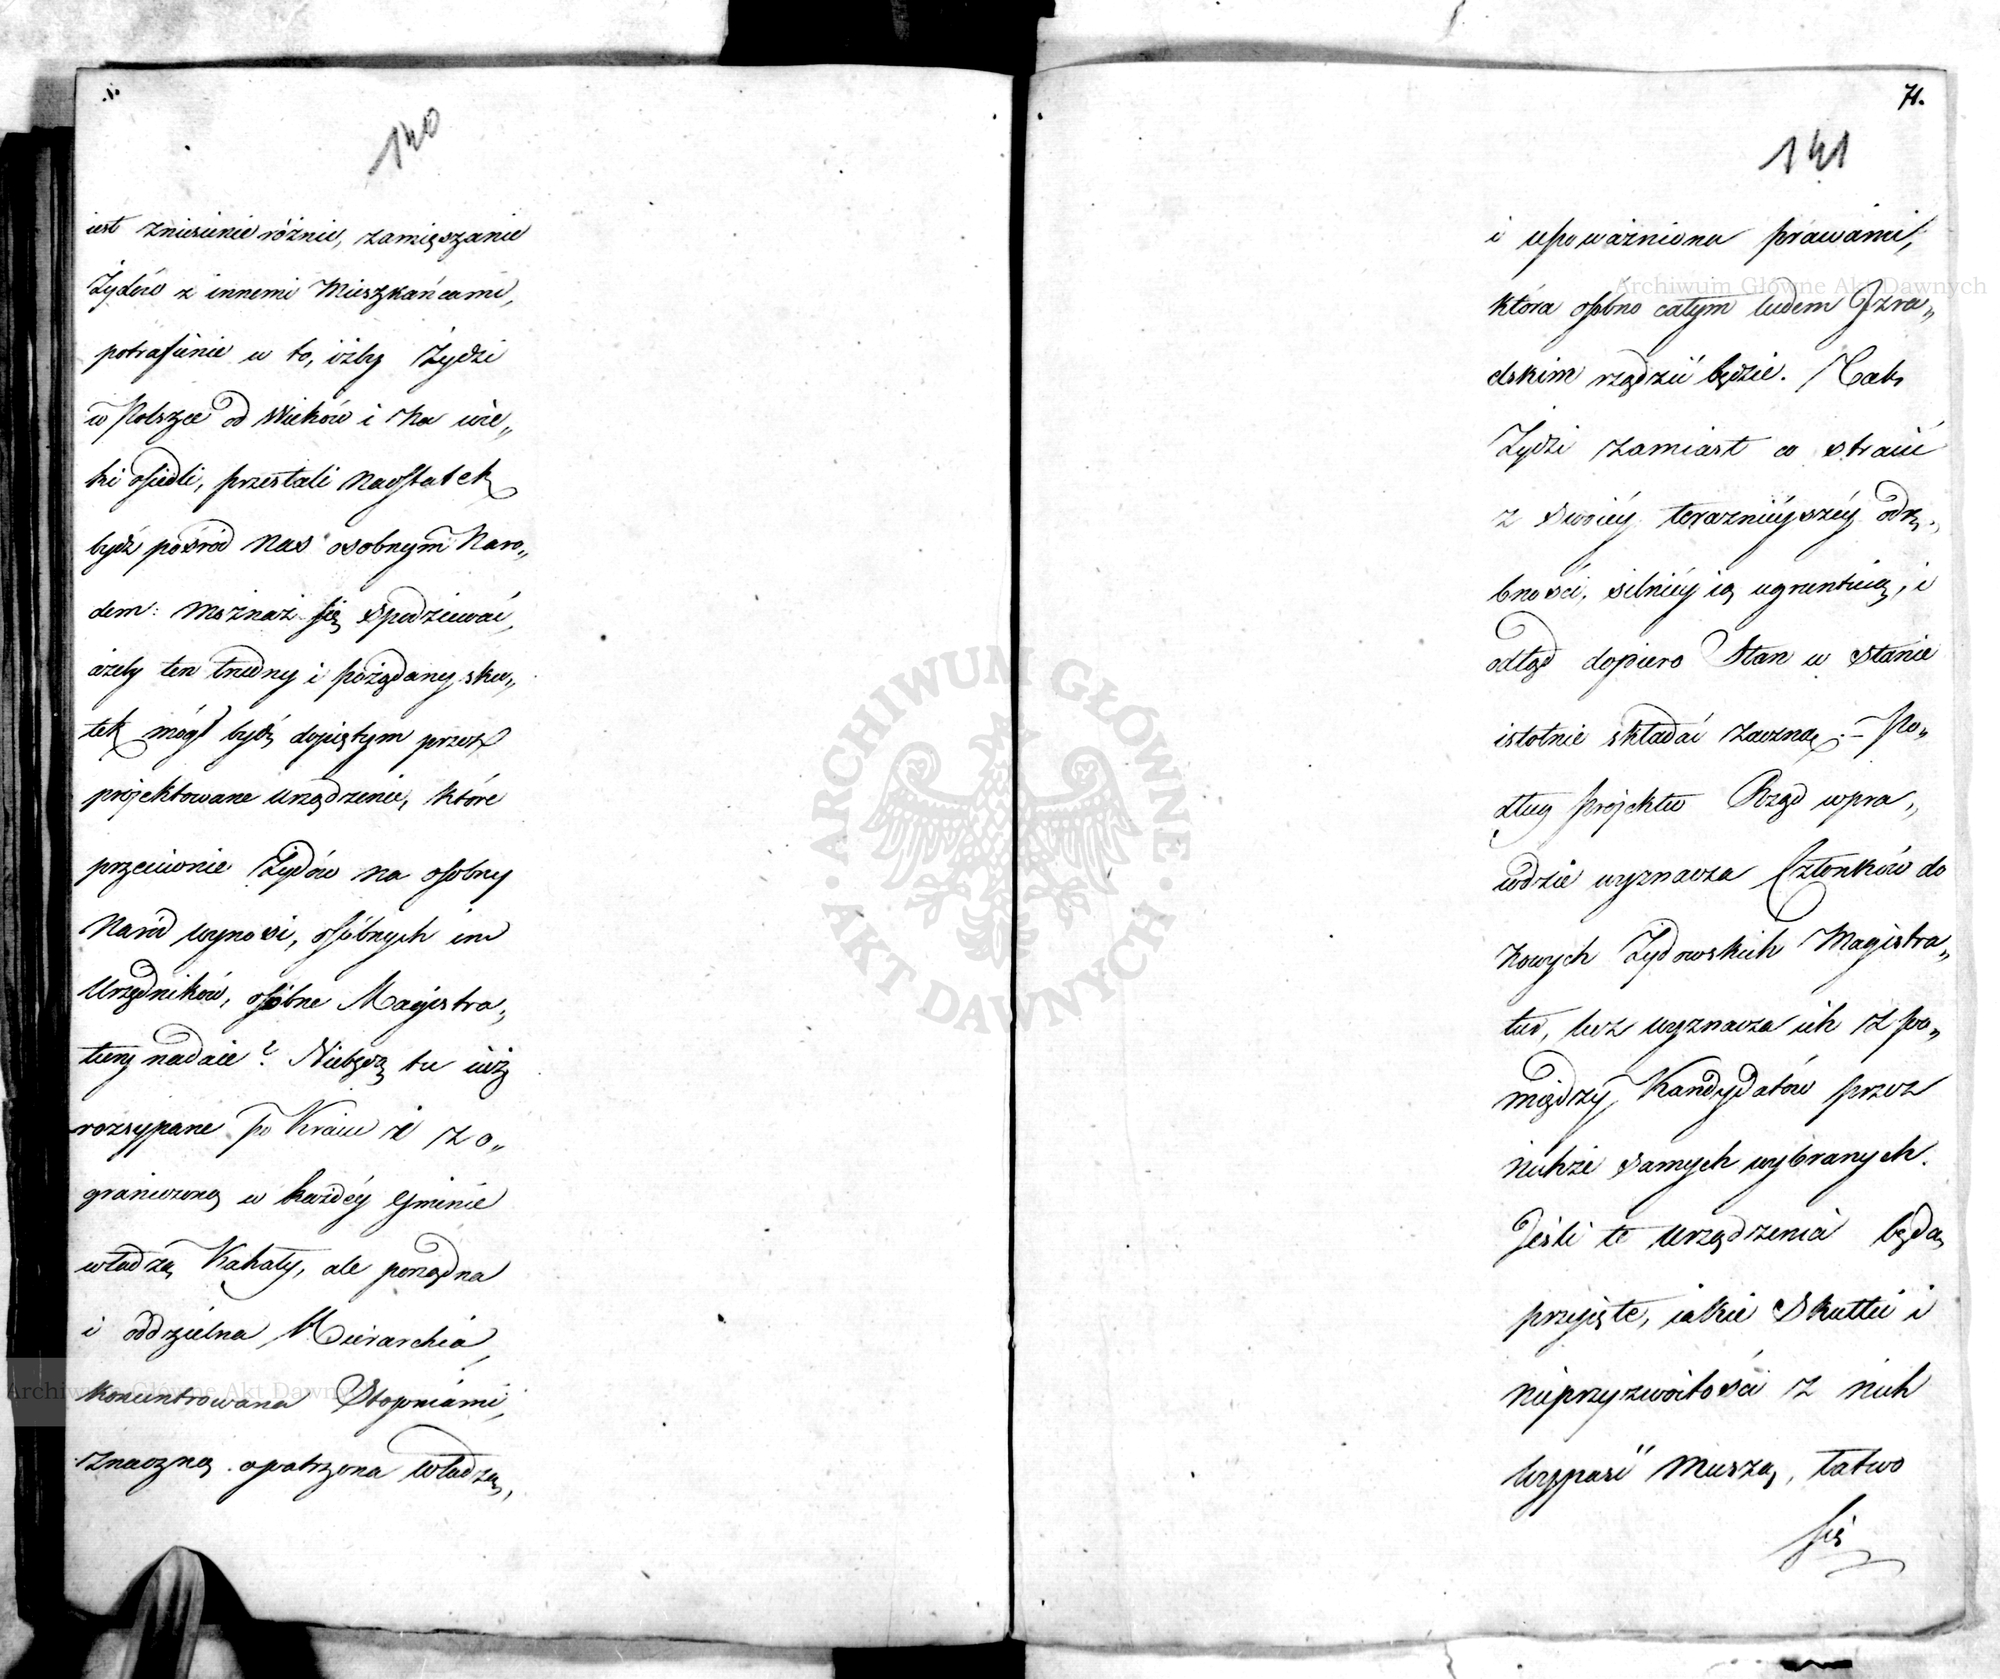 140
iest zniesienie różnic, zamięszanie
Żydów z innemi Mieszkańcami,
potrafienie w to, iżby Żydzi
w Polszcze od Wieków i Na wie„
ki osiedli, przestali naostatek
bydź pośród Nas osobnym Naro„
dem: Możnaż się spodziewać,
ażeby ten trudny i pożądany sku„
tek mógł bydź dopiętym przez
projektowane urządzenie, które
przeciwnie Żydów na osobny
Naród wynosi, osóbnych im
Urzędników, osóbne Magistra„
tury nadaie? Niebędą tu iuż
rozsypane po Kraiu i z o„
graniczoną w każdéy Gminie
władzą Kahały, ale porządna
i oddzielna Hierarchia,
koncentrowana Stopniami,
znaczną opatrzona władzą,
71.
141
i upoważniona prawami,
która osobno całym ludem Izra„
elskim rządzić będzie. Tak
Żydzi zamiast co stracić
z swoiéy teraznieyszéy odrę„
bności, silniéy ią ugruntuią, i
odtąd dopiero Stan w Stanie
istotnie składać zaczną. – Po„
dług projektu Rząd wpra„
wdzie wyznacza Członków do
Nowych Żydowskich Magistra„
tur, lecz wyznacza ich z po„
między Kandydatów przez
nichże samych wybranych.
Jeśli te urządzenia będą
przyięte, iakie Skutki i
nieprzyzwoitości z nich
wypaść muszą, łatwo
się
ARCHIWUM GŁÓWNE
AKT DAWNYCH
Archiwum Główne Akt Dawnych
Archiwum Główne Akt Dawnych